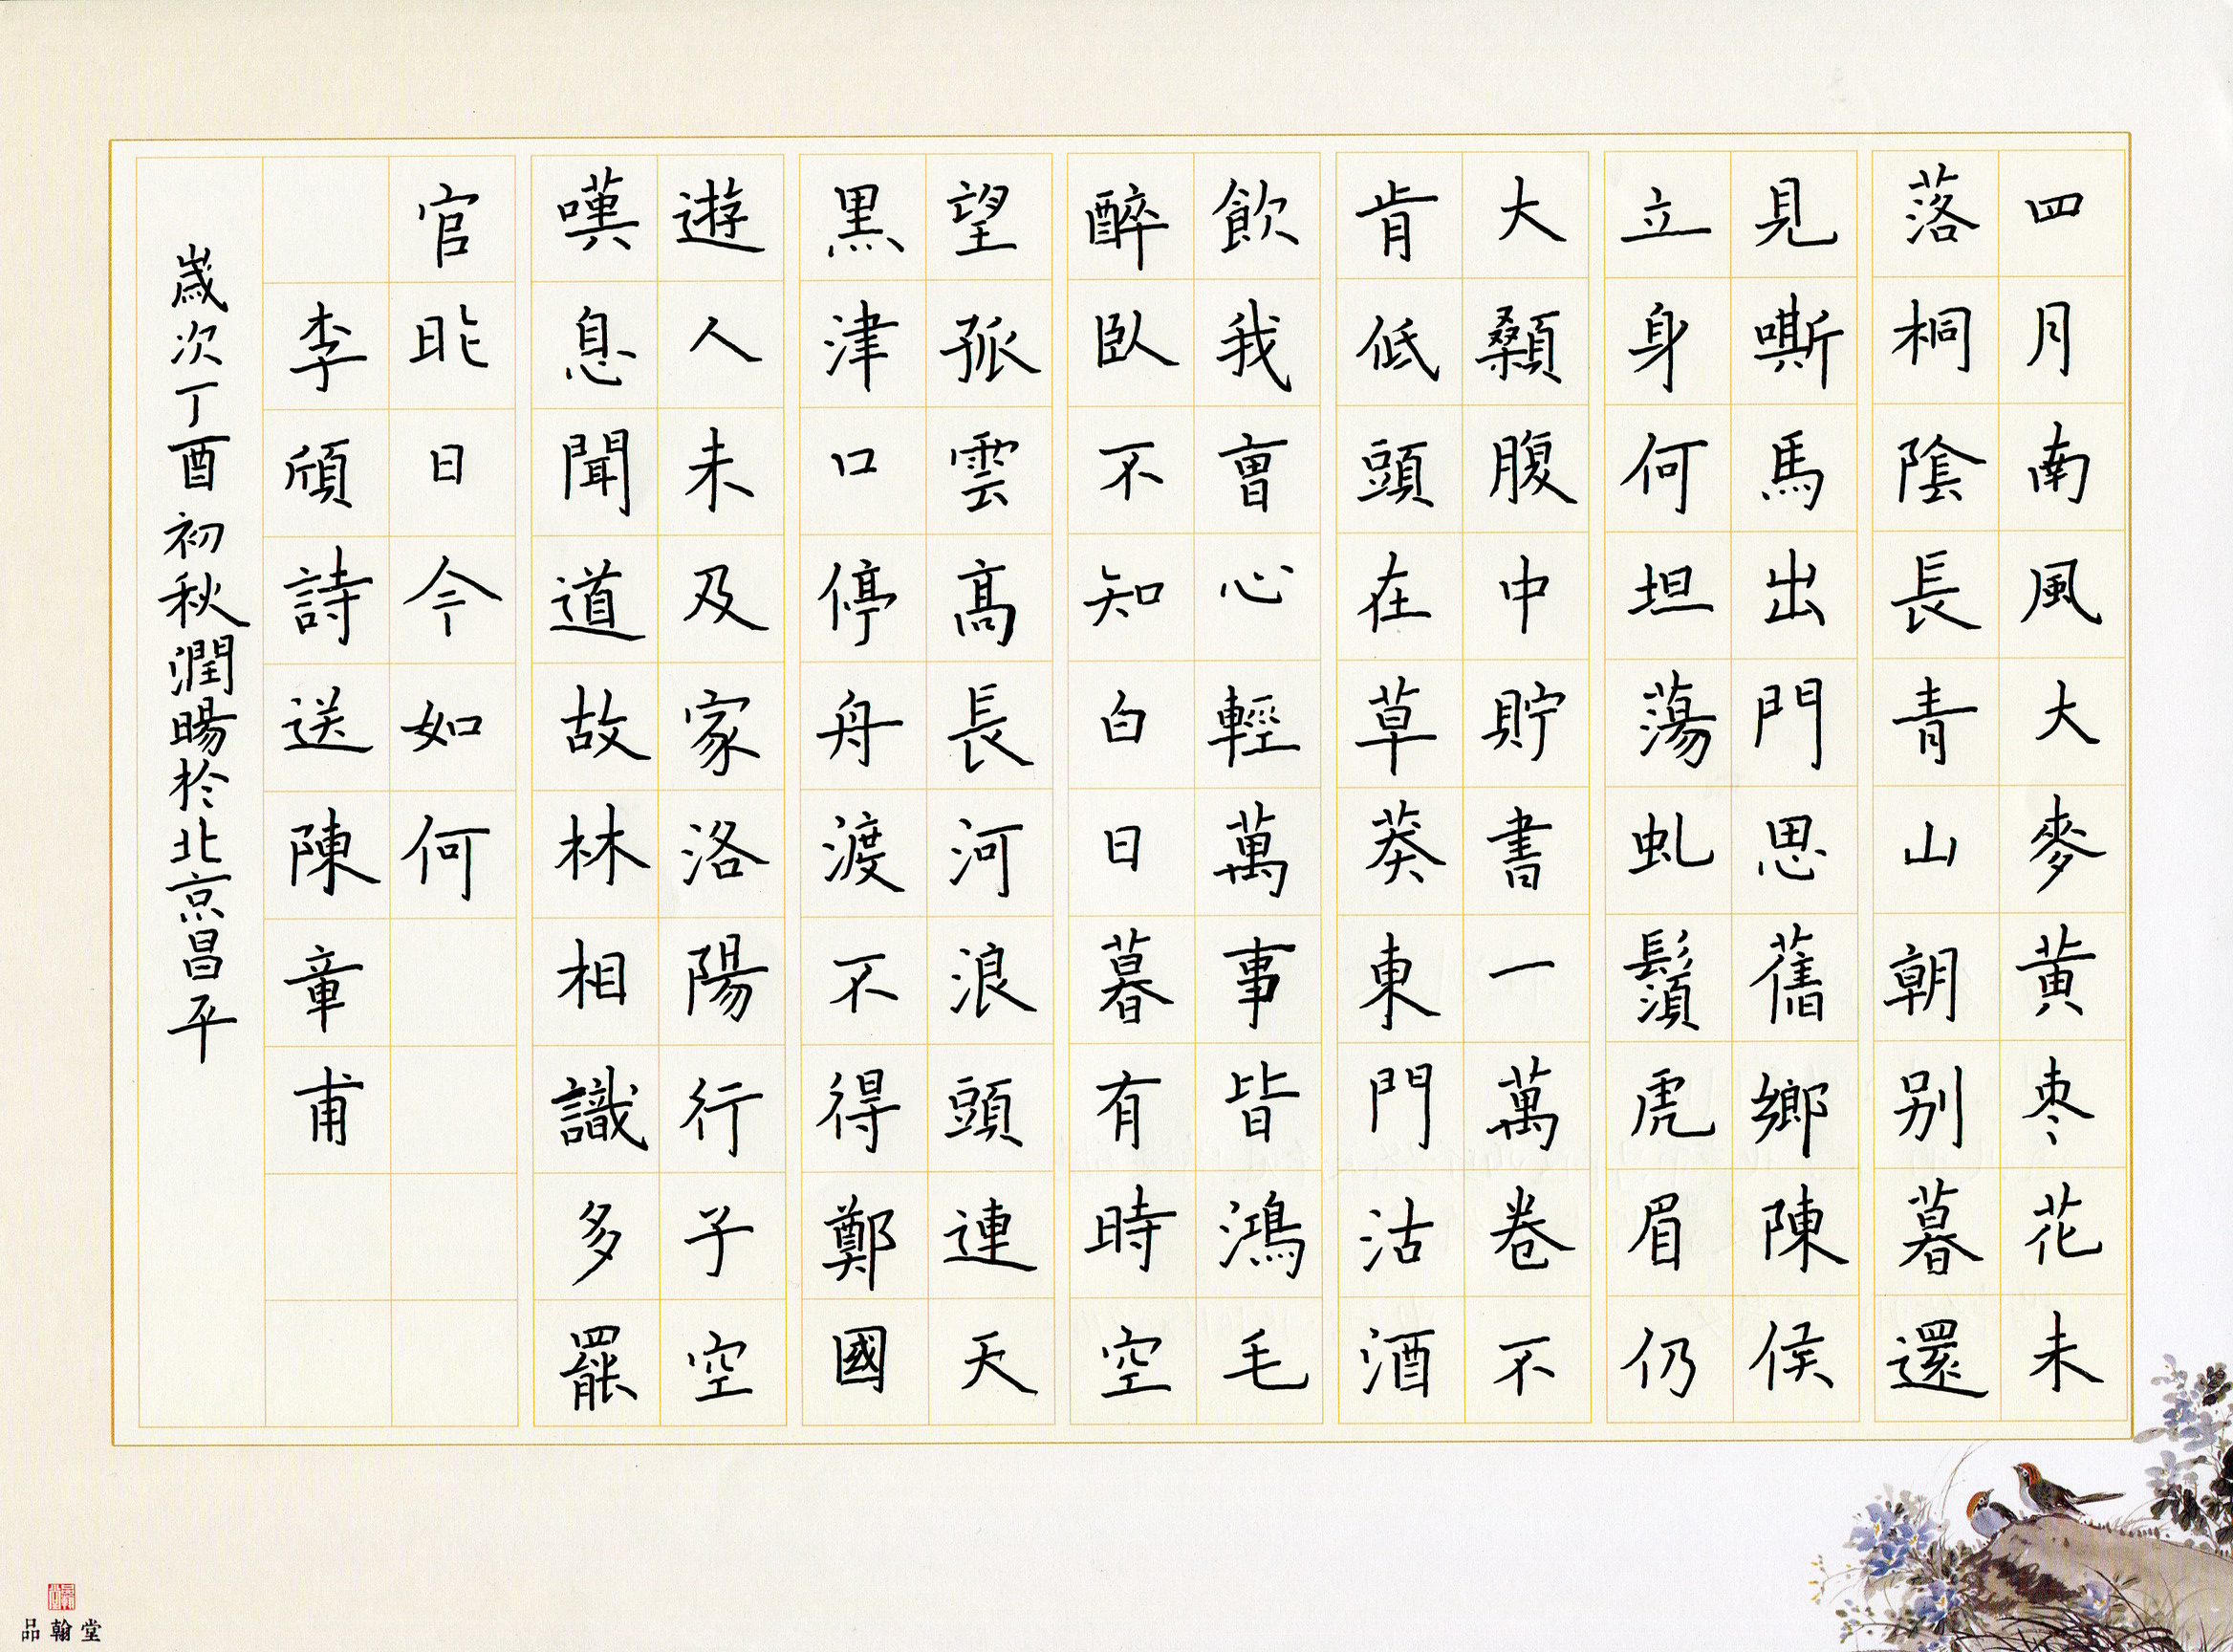 四月南風大麥黃枣花未
落桐陰長青山朝别暮還
見嘶馬出門思舊鄉陳侯
立身何坦蕩虬鬚虎眉仍
大顙腹中貯書一萬卷不
肯低頭在草莽東門沽酒
飲我曹心輕萬事皆鴻毛
醉臥不知白日暮有時空
望孤雲高長河浪頭連天
黒津口停舟渡不得鄭國
遊人未及家洛陽行子空
嘆息聞道故林相識多罷
官昨日今如何
李頎詩送陳章甫
歲次丁酉初秋潤暘於北京昌平
品翰堂